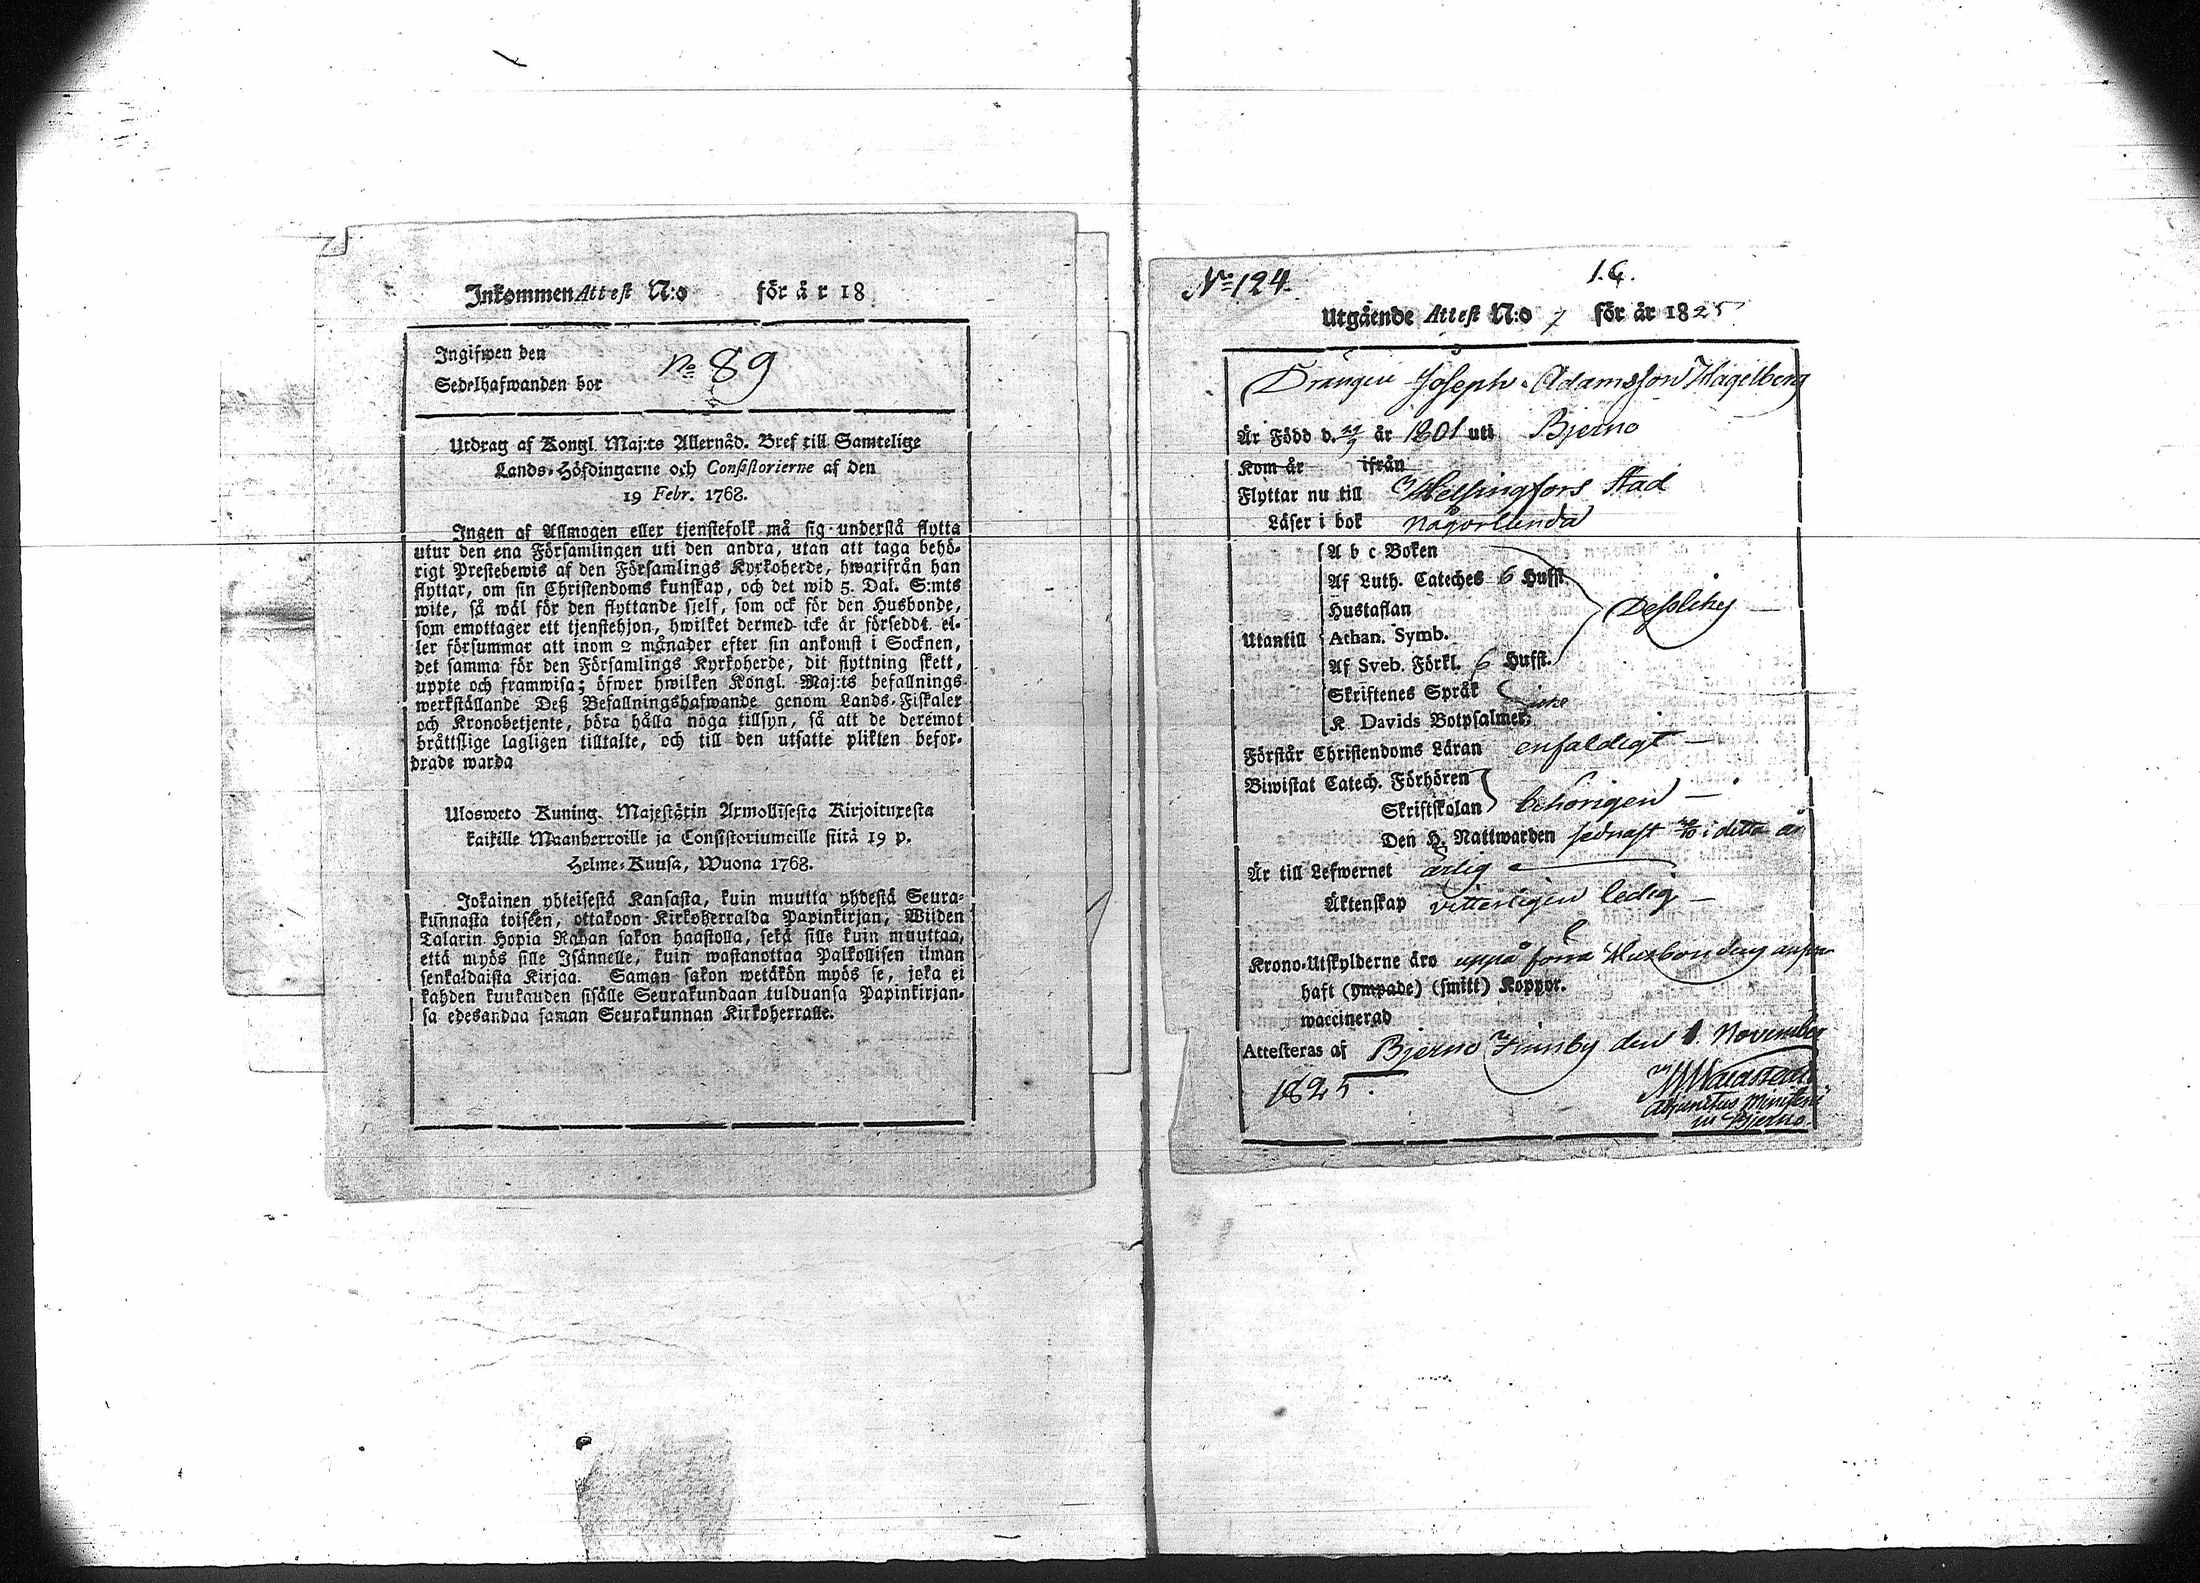 Inkommen Attest N:o för år 18
Ingifwen den
Sedelhafwanden bor
No 89
Utdrag af Kongl. Maj:ts Allernåd. Bref till Samtelige
Lands-Höfdingarne och Consistorierne af den
19 Febr. 1768.
Ingen af Allmogen eller tjenstefolk må sig understå flytta
utur den ena Församlingen uti den andra, utan att taga behö-
rigt Prestebewis af den Församlings Kyrkoherde, hwarifrån han
flyttar, om sin Christendoms kunskap, och det wid 5. Dal. S:mts
wite, så wäl för den flyttande sjelf, som ock för den Husbonde,
som emottager ett tjenstehjon, hwilket dermed icke är förseddt el-
ler försummar att inom 2 månader efter sin ankomst i Socknen,
det samma för den Församlings Kyrkoherde, dit flyttning skett,
uppte och framwisa; öfwer hwilken Kongl. Maj:ts befallnings
werkställande Deß Befallningshafwande genom Lands-Fiskaler
och Kronobetjente, böra hålla noga tillsyn, så att de deremot
bråttslige lagligen tilltalte, och till den utsatte plikten befor-
drade warda
Ulosweto Kuning. Majestätin Armollisesta Kirjoituxesta
kaikille Maanherroille ja Consistoriumeille siitä 19 p.
Helme-Kuusa, Wuona 1768.
Jokainen yhteisestä Kansasta, kuin muutta yhdestä Seura-
kunnasta toiseen, ottakoon Kirkoherralda Papinkirjan, Wiiden
Talarin Hopia Rahan sakon haastolla, sekä sille kuin muuttaa,
että myös sille Isännelle, kuin wastanottaa Palkollisen ilman
senkaldaista Kirjaa. Saman sakon wetäkön myös se, joka ei
kahden kuukauden sisälle Seurakundaan tulduansa Papinkirjan-
sa edesandaa saman Seurakunnan Kirkoherralle.
No 124. 1.C.
Utgående Attest N:o 7 för år 1825
Drängen Joseph Adamsson Hagelberg
Är Född d. år 1801 uti Bjerno
Kom år ifrån
Flyttar nu till Helsingfors Stad
Läser i bok någorlunda
A b c Boken
Af Luth. Cateches 6 Hufst.
Hustaflan Desslikes
Utantill Athan. Symb.
Af Sveb. Förkl. 6 Hufst.
Skriftenes Språk
K. Davids Botpsalmer. icke
Förstår Christendoms Läran enfaldigt
Biwistat Catech. Förhören
Skriftskolan behörigen
Den H. Nattwarden sednast i detta år
Är till Lefwernet ärlig
Äktenskap vitterligen ledig
Krono-Utskylderne äro uppå förra Husbondens answar
haft (ympade) (smitt) Koppor.
waccinerad
Attesteras af Bjerno Finnby den 1. November
1825.
Adjunctus Ministerii
in Bjerno.